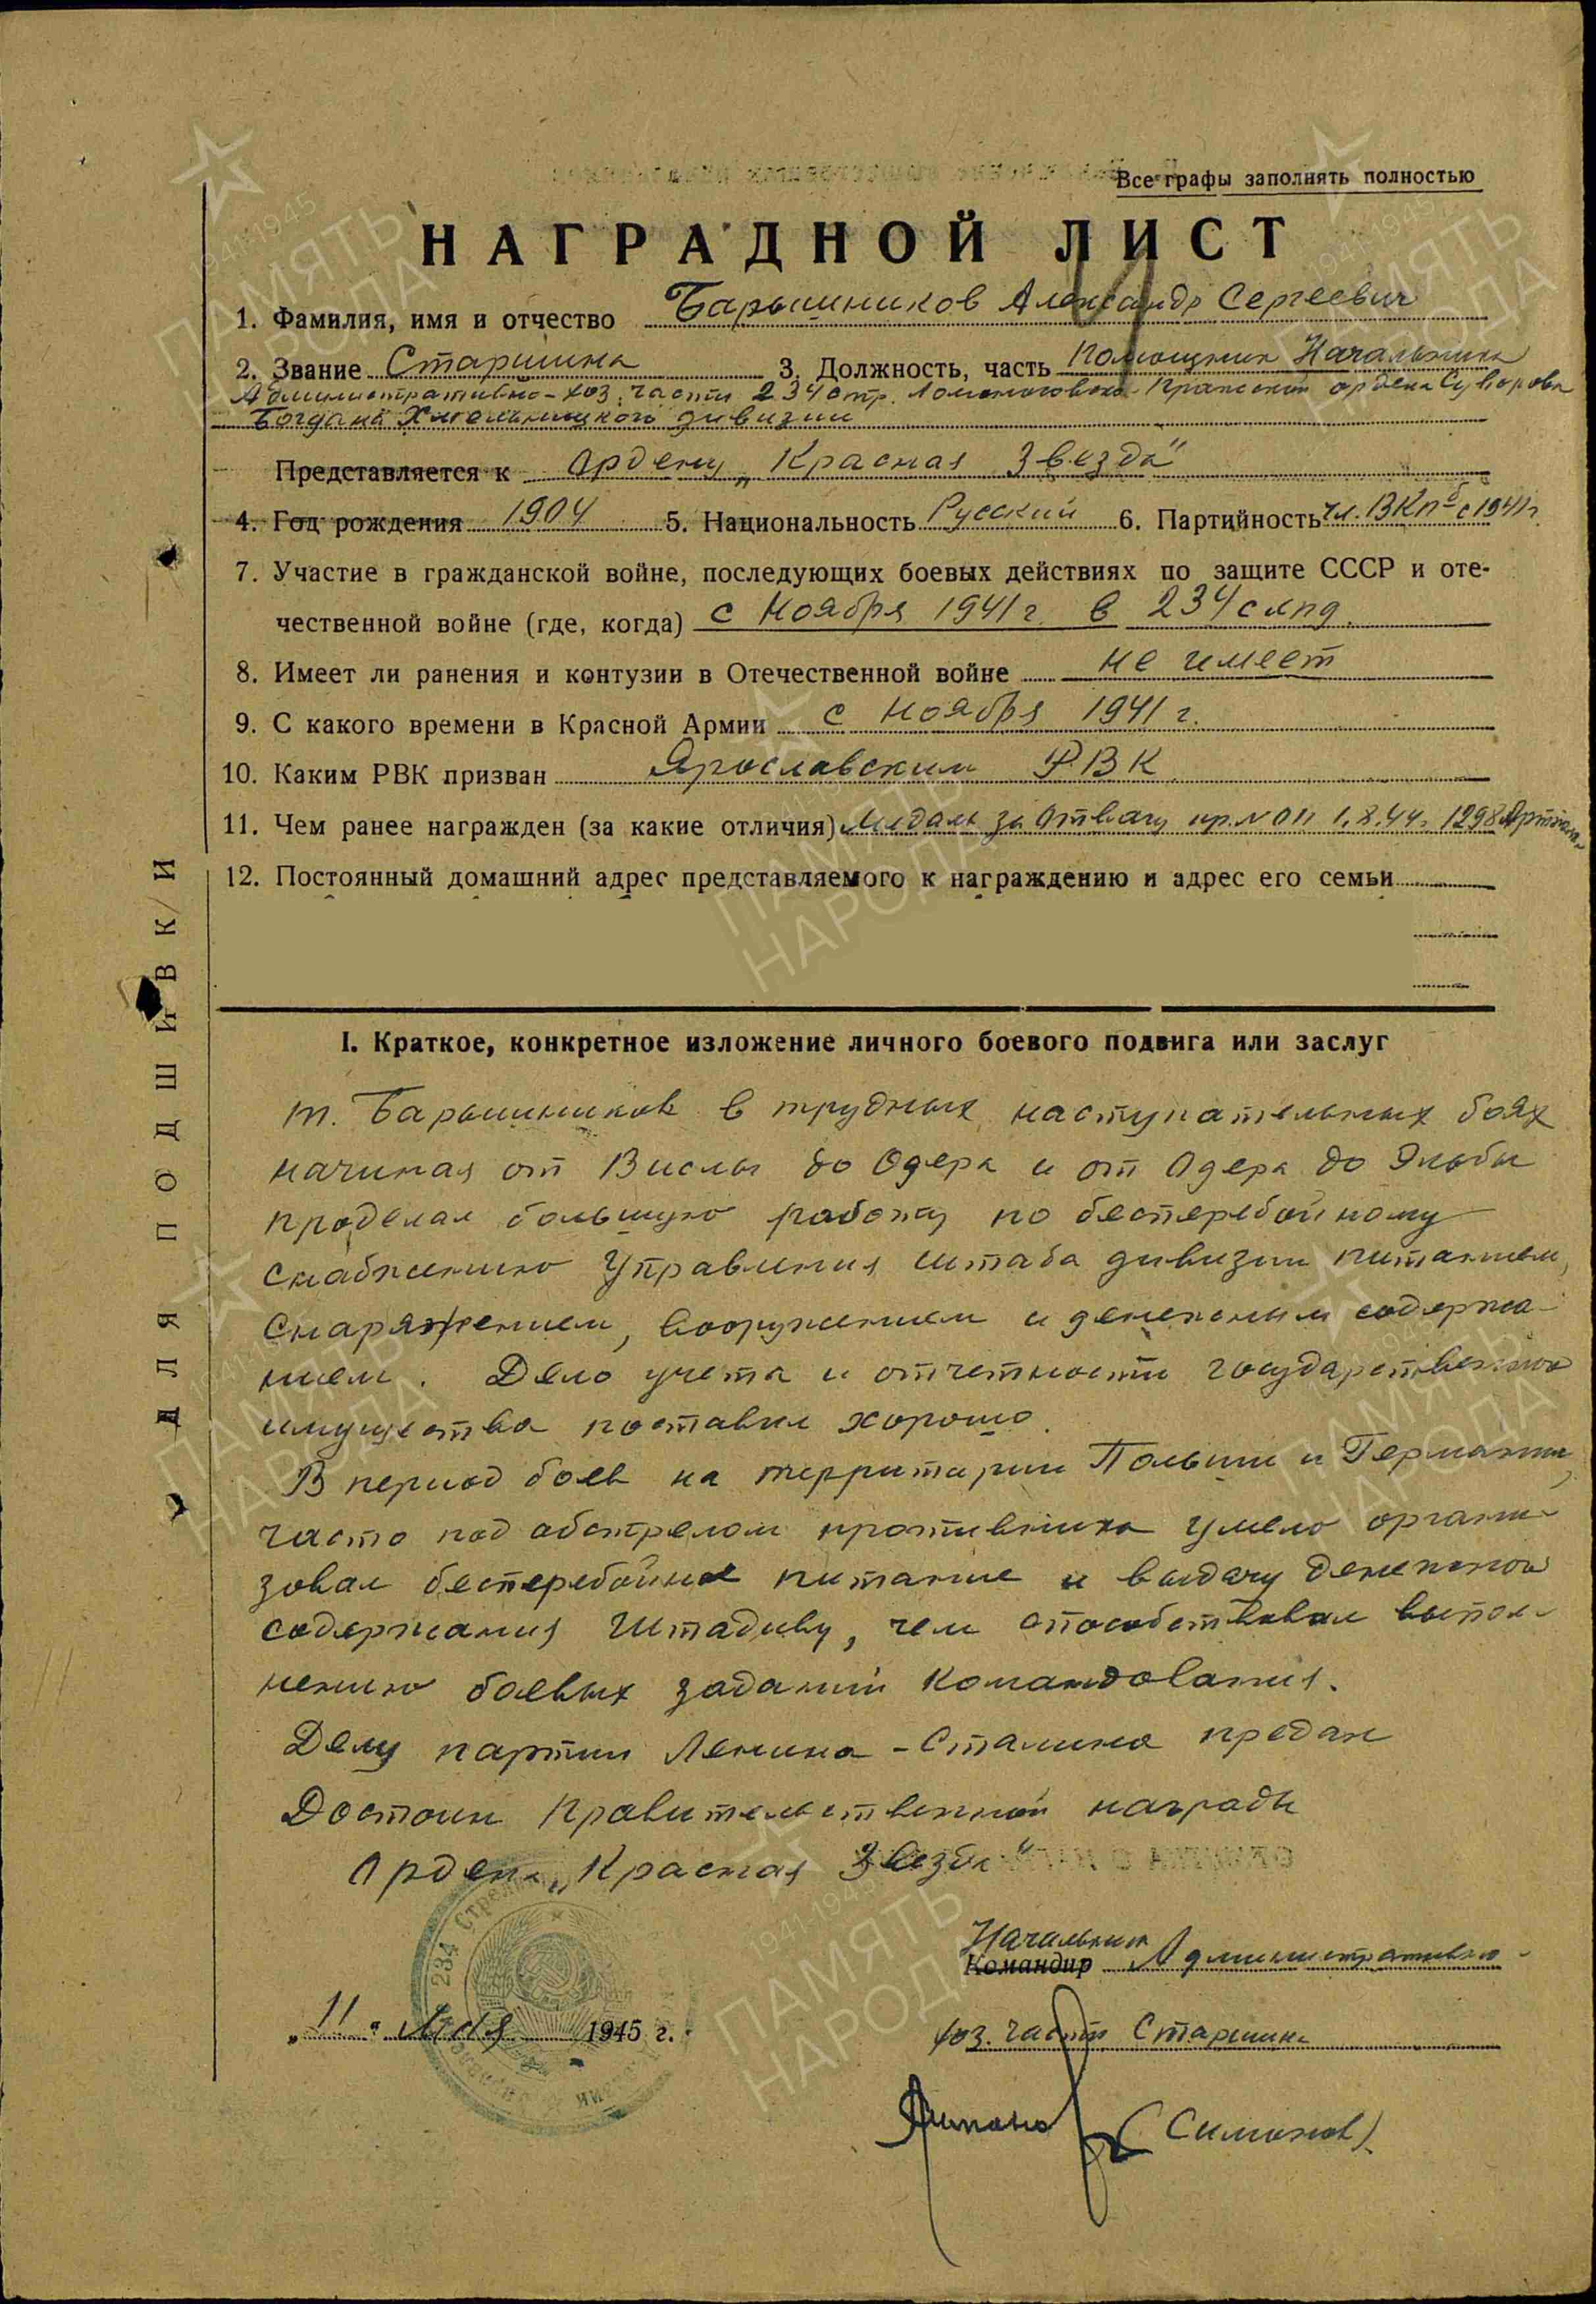 Все графы заполнять полностью
НАГРАДНОЙ ЛИСТ
1. Фамилия, имя и отчество Барышников Александр Сергеевич
2. Звание Старшина 3. Должность, часть Помощник Начальника
Административно-хоз. части 234 стр. Ломоносовско-Пражской ордена Суворова
Богдана Хмельницкого дивизии
Представляется к Ордену „Красная Звезда"
4. Год рождения 1904 5. Национальность Русский 6. Партийность чл. ВКПб с 1941 г.
7. Участие в гражданской войне, последующих боевых действиях по защите СССР и оте-
чественной войне (где, когда) с Ноября 1941 г. в 234 слпд.
8. Имеет ли ранения и контузии в Отечественной войне не имеет
9. С какого времени в Красной Армии с ноября 1941 г.
10. Каким РВК призван Ярославским РВК
11. Чем ранее награжден (за какие отличия) Медаль за Отвагу пр. N 011 1.8.44г. 1298
12. Постоянный домашний адрес представляемого к награждению и адрес его семьи
ДЛЯ ПОДШИВКИ
I. Краткое, конкретное изложение личного боевого подвига или заслуг
т. Барышников в трудных наступательных боях
начиная от Вислы до Одера и от Одера до Эльбы
проделал большую работу по бесперебойному
снабжению Управления штаба дивизии питанием,
снаряжением, вооружением и денежным содержа-
нием. Дело учета и отчетности государственного
имущества поставил хорошо.
В период боев на территории Польши и Германии,
часто под обстрелом противника умело органи-
зовал бесперебойное питание и выдачу денежного
содержания Штадиву, чем способствовал выпол-
нению боевых заданий Командования.
Делу партии Ленина-Сталина предан
Достоин Правительственной награды
Ордена „Красная Звезда"
Начальник
Командир Административно-
хоз. части Старшина
„11" Мая 1945 г.
(Симонов)
234 Стрелковая
1941-1945
ПАМЯТЬ
НАРОДА